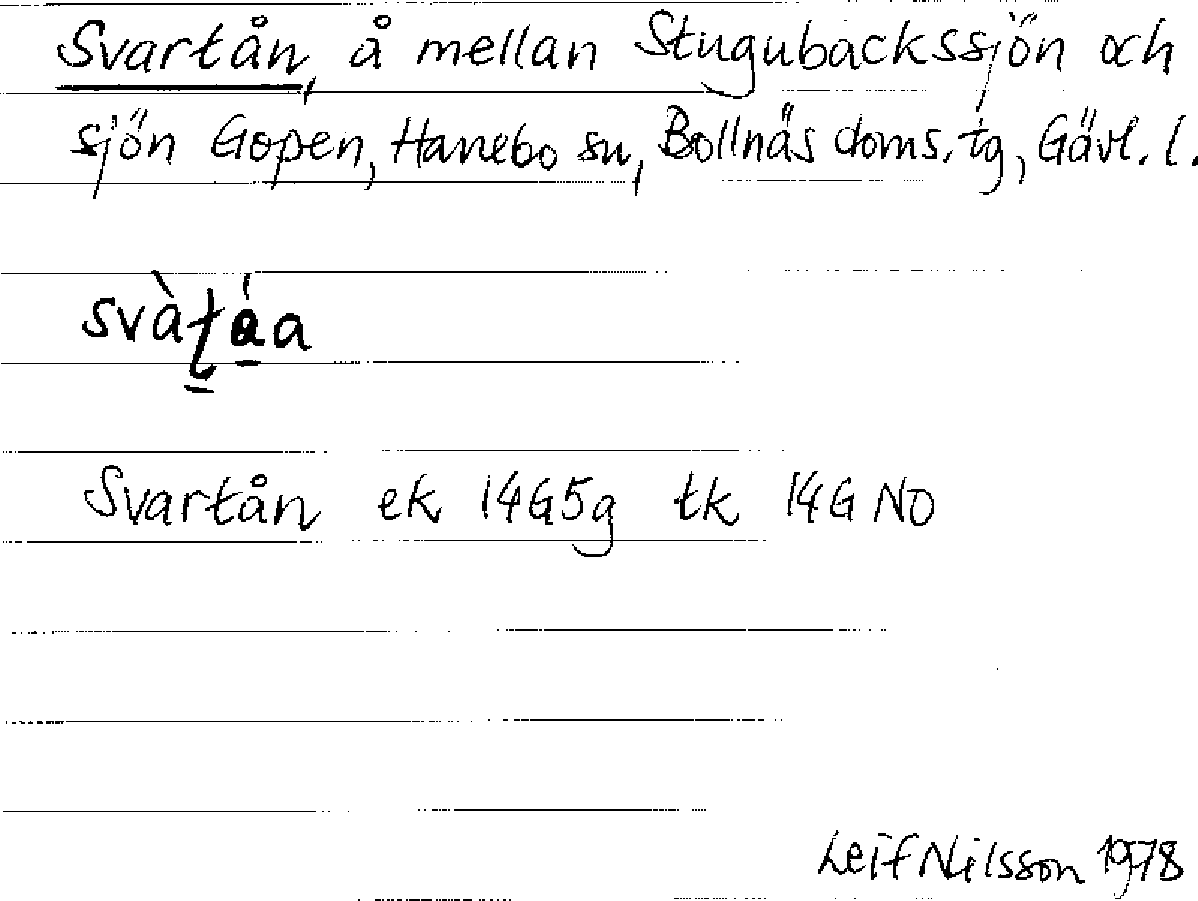 Svartån, å mellan Stugubackssjön och
sjön Gopen, Hanebo sn, Bollnäs doms.tg, Gävl. l.
svàṭáa
Svartån ek 14G5g tk 14G NO
Leif Nilsson 1978